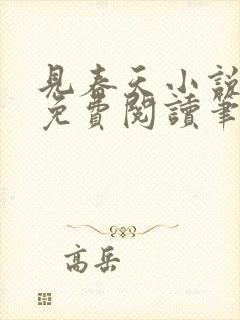 見春天小說
免費閱讀筆
高岳